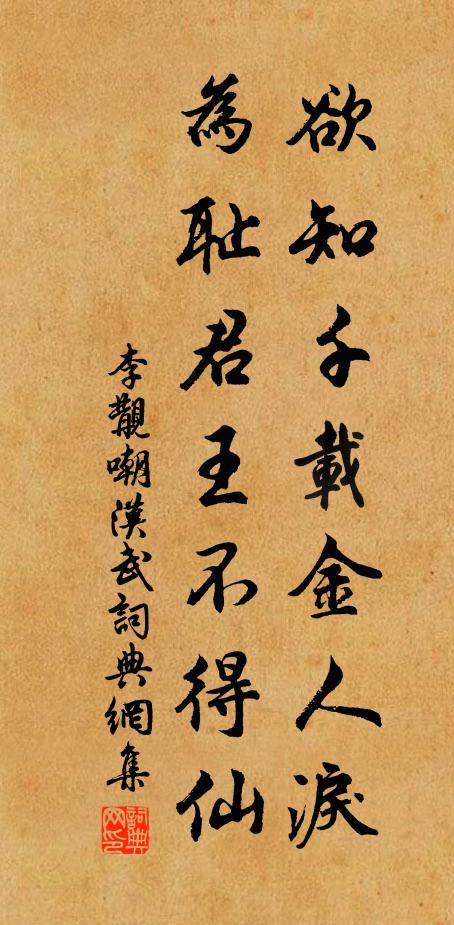 欲知千載金人淚
為耻君王不得仙
李覯嘲漢武詞典網集
詞典網印